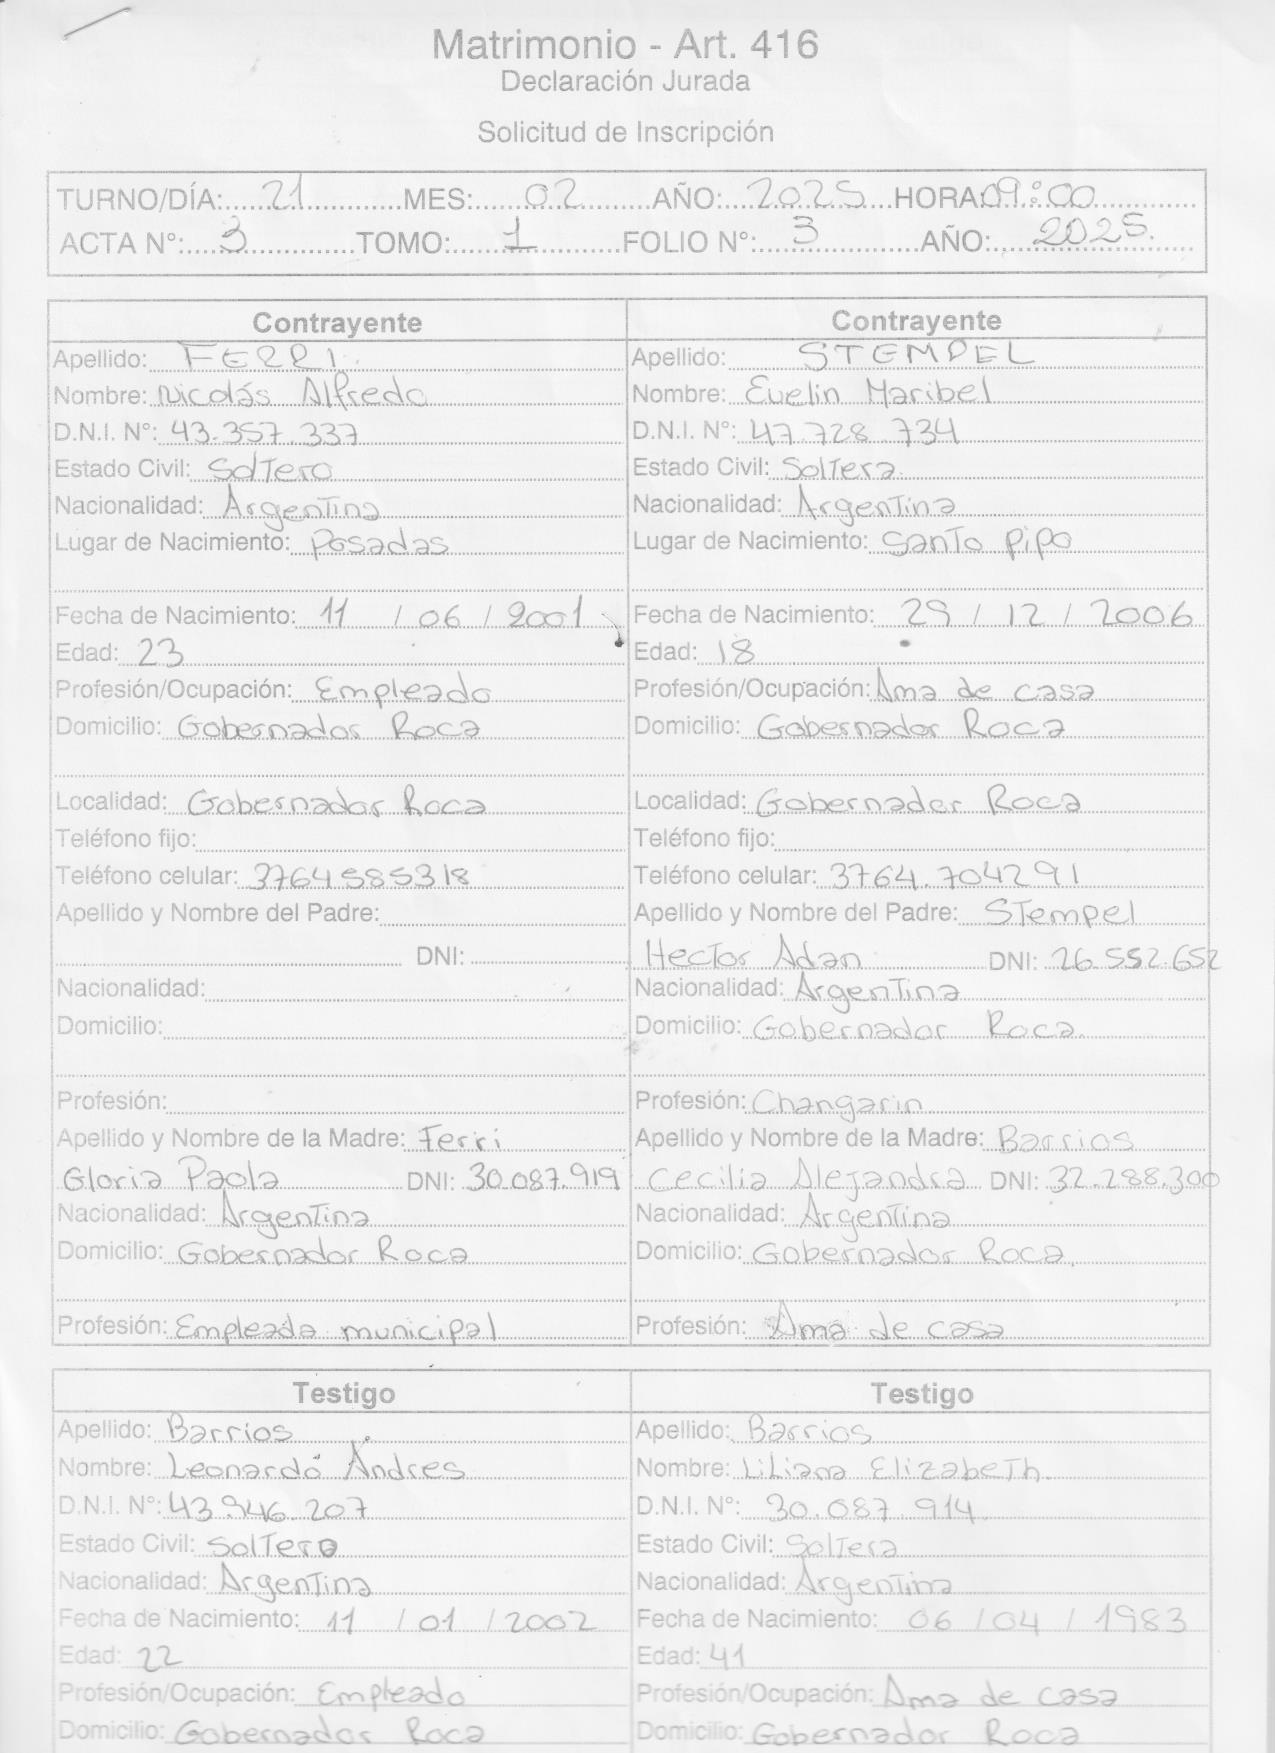 Matrimonio - Art. 416
Declaración Jurada
Solicitud de Inscripción
TURNO/DÍA: 21 MES: 02 AÑO: 2025 HORA: 09:00
ACTA N°: 3 TOMO: 1 FOLIO N°: 3 AÑO: 2025.
Contrayente
Apellido: FERRI.
Nombre: Nicolás Alfredo
D.N.I. N°: 43.357.337
Estado Civil: Soltero
Nacionalidad: Argentina
Lugar de Nacimiento: Posadas
Fecha de Nacimiento: 11 / 06 / 2001
Edad: 23
Profesión/Ocupación: Empleado
Domicilio: Gobernador Roca
Localidad: Gobernador Roca
Teléfono fijo:
Teléfono celular: 3764 585318
Apellido y Nombre del Padre:
DNI:
Nacionalidad:
Domicilio:
Profesión:
Apellido y Nombre de la Madre: Ferri
Gloria Paola DNI: 30.087.919
Nacionalidad: Argentina
Domicilio: Gobernador Roca
Profesión: Empleada municipal
Contrayente
Apellido: STEMPEL
Nombre: Evelin Maribel
D.N.I. N°: 47.728.734
Estado Civil: Soltera.
Nacionalidad: Argentina
Lugar de Nacimiento: Santo Pipo
Fecha de Nacimiento: 29 / 12 / 2006
Edad: 18
Profesión/Ocupación: Ama de casa
Domicilio: Gobernador Roca
Localidad: Gobernador Roca
Teléfono fijo:
Teléfono celular: 3764.704291
Apellido y Nombre del Padre: Stempel
Hector Adan DNI: 26.552.652
Nacionalidad: Argentina
Domicilio: Gobernador Roca.
Profesión: Changarin
Apellido y Nombre de la Madre: Barrios
Cecilia Alejandra DNI: 32.288.300
Nacionalidad: Argentina
Domicilio: Gobernador Roca
Profesión: Ama de casa
Testigo
Apellido: Barrios
Nombre: Leonardo Andres
D.N.I. N°: 43.946.207
Estado Civil: Soltero
Nacionalidad: Argentina
Fecha de Nacimiento: 11 / 01 / 2002
Edad: 22
Profesión/Ocupación: Empleado
Domicilio: Gobernador Roca
Testigo
Apellido: Barrios
Nombre: Liliana Elizabeth.
D.N.I. N°: 30.087 914
Estado Civil: Soltera
Nacionalidad: Argentina
Fecha de Nacimiento: 06 / 04 / 1983
Edad: 41
Profesión/Ocupación: Ama de casa
Domicilio: Gobernador Roca